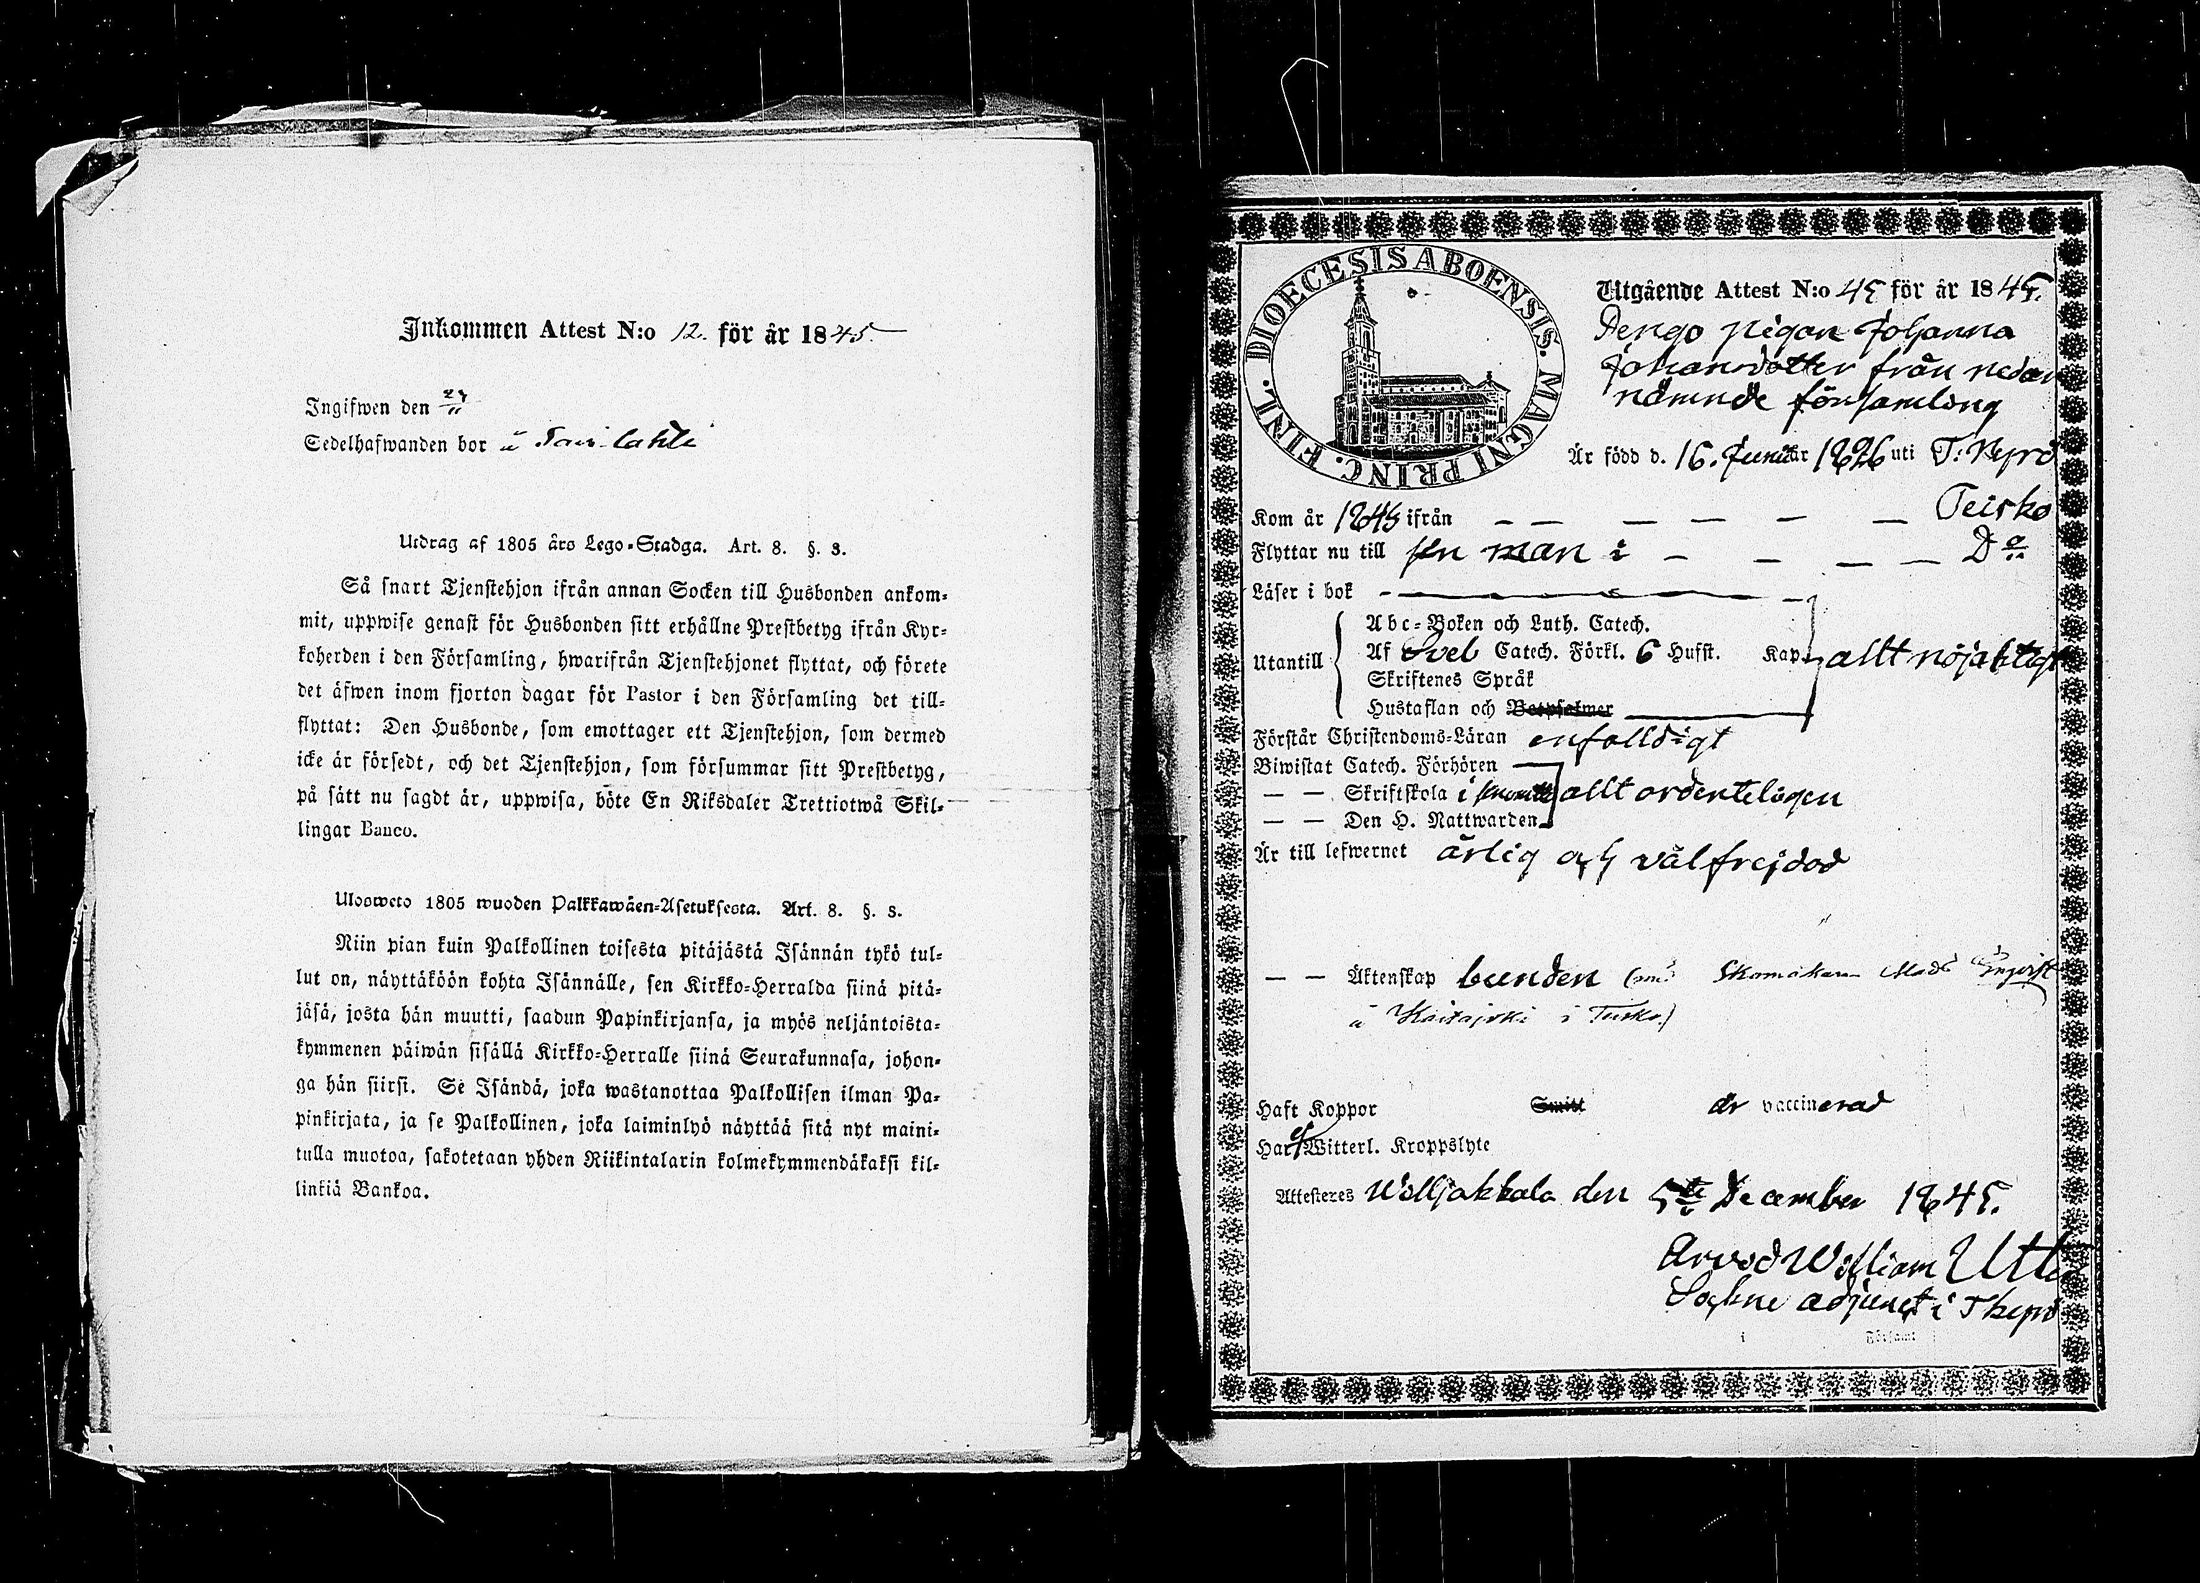 Inkommen Attest N:o 12. för år 1845.
Ingifwen den
Sedelhafwanden bor å
Utdrag af 1805 års Lego-Stadga. Art. 8. §. 3.
Så snart Tjenstehjon ifrån annan Socken till Husbonden ankom-
mit, uppwise genast för Husbonden sitt erhållne Prestbetyg ifrån Kyr-
koherden i den Församling, hwarifrån Tjenstehjonet flyttat, och förete
det äfwen inom fjorton dagar för Pastor i den Församling det till-
flyttat: Den Husbonde, som emottager ett Tjenstehjon, som dermed
icke är försedt, och det Tjenstehjon, som försummar sitt Prestbetyg,
på sätt nu sagdt är, uppwisa, böte En Riksdaler Trettiotwå Skil-
lingar Banco.
Ulosweto 1805 wuoden Palkkawäen-Asetuksesta. Art. 8. §. 3.
Niin pian kuin Palkollinen toisesta pitäjästä Isännän tykö tul-
lut on, näyttäköön kohta Isännälle, sen Kirkko-Herralda siinä pitä-
jäsä, josta hän muutti, saadun Papinkirjansa, ja myös neljäntoista-
kymmenen päiwän sisällä Kirkko-Herralle siinä Seurakunnasa, johon-
ga hän siirsi. Se Isändä, joka wastanottaa Palkollisen ilman Pa-
pinkirjata, ja se Palkollinen, joka laiminlyö näyttää sitä nyt maini-
tulla muotoa, sakotetaan yhden Riikintalarin kolmekymmendäkaksi kil-
linkiä Bankoa.
DIOECESIS ABOENSIS. MAGNI PRINC. FINL.
Utgående Attest N:o 45 för år 1845.
Pergo pigan Johanna
Johansdotter från nedan
nämnde församling
Är född d. 16. Juni år 1826 uti T: Kyrö
Kom år 1845 ifrån — — — — — — Teisko
Flyttar nu till sin man i — — — — Do
Läser i bok
Abc-Boken och Luth. Catech.
Utantill Af Svel Catech. Förkl. 6 Hufst. Kap. allt nöjaktigt
Skriftenes Språk
Hustaflan och Botpsalmer
Förstår Christendoms-Läran enfaldigt
Biwistat Catech. Förhören
— — Skriftskola i allt ordenteligen
— — Den H. Nattwarden
Är till lefwernet ärlig och välfrejdad
— — Äktenskap bunden (med Skomakaren Mads
å i Teisko)
Haft Koppor Smitt är vaccinerad
Har ej Witterl. Kroppslyte
Attesteres Wiljakkala den 5te December 1845.
Arvid William Utter
Sockne adjunct i Tkyrö
i Församl